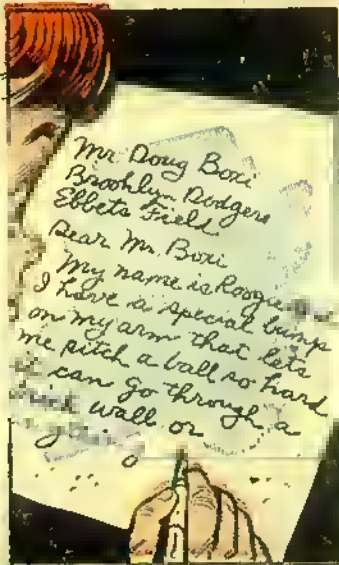 Mr. Doug Boxi
Brooklyn Dodgers
Ebbets Field
Dear Mr. Boxi
My name is Roogie
I have a special bump
on my arm that lets
me pitch a ball so hard
it can go through a
brick wall or